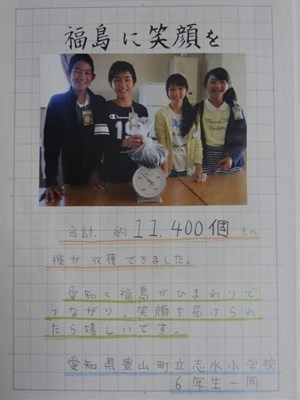 福島に笑顔を
合計、約11,400個もの
種が収穫できました。
愛知と福島がひまわりで
つながり、笑顔を届けられ
たら嬉しいです。
愛知県豊山町立志水小学校
6年生一同